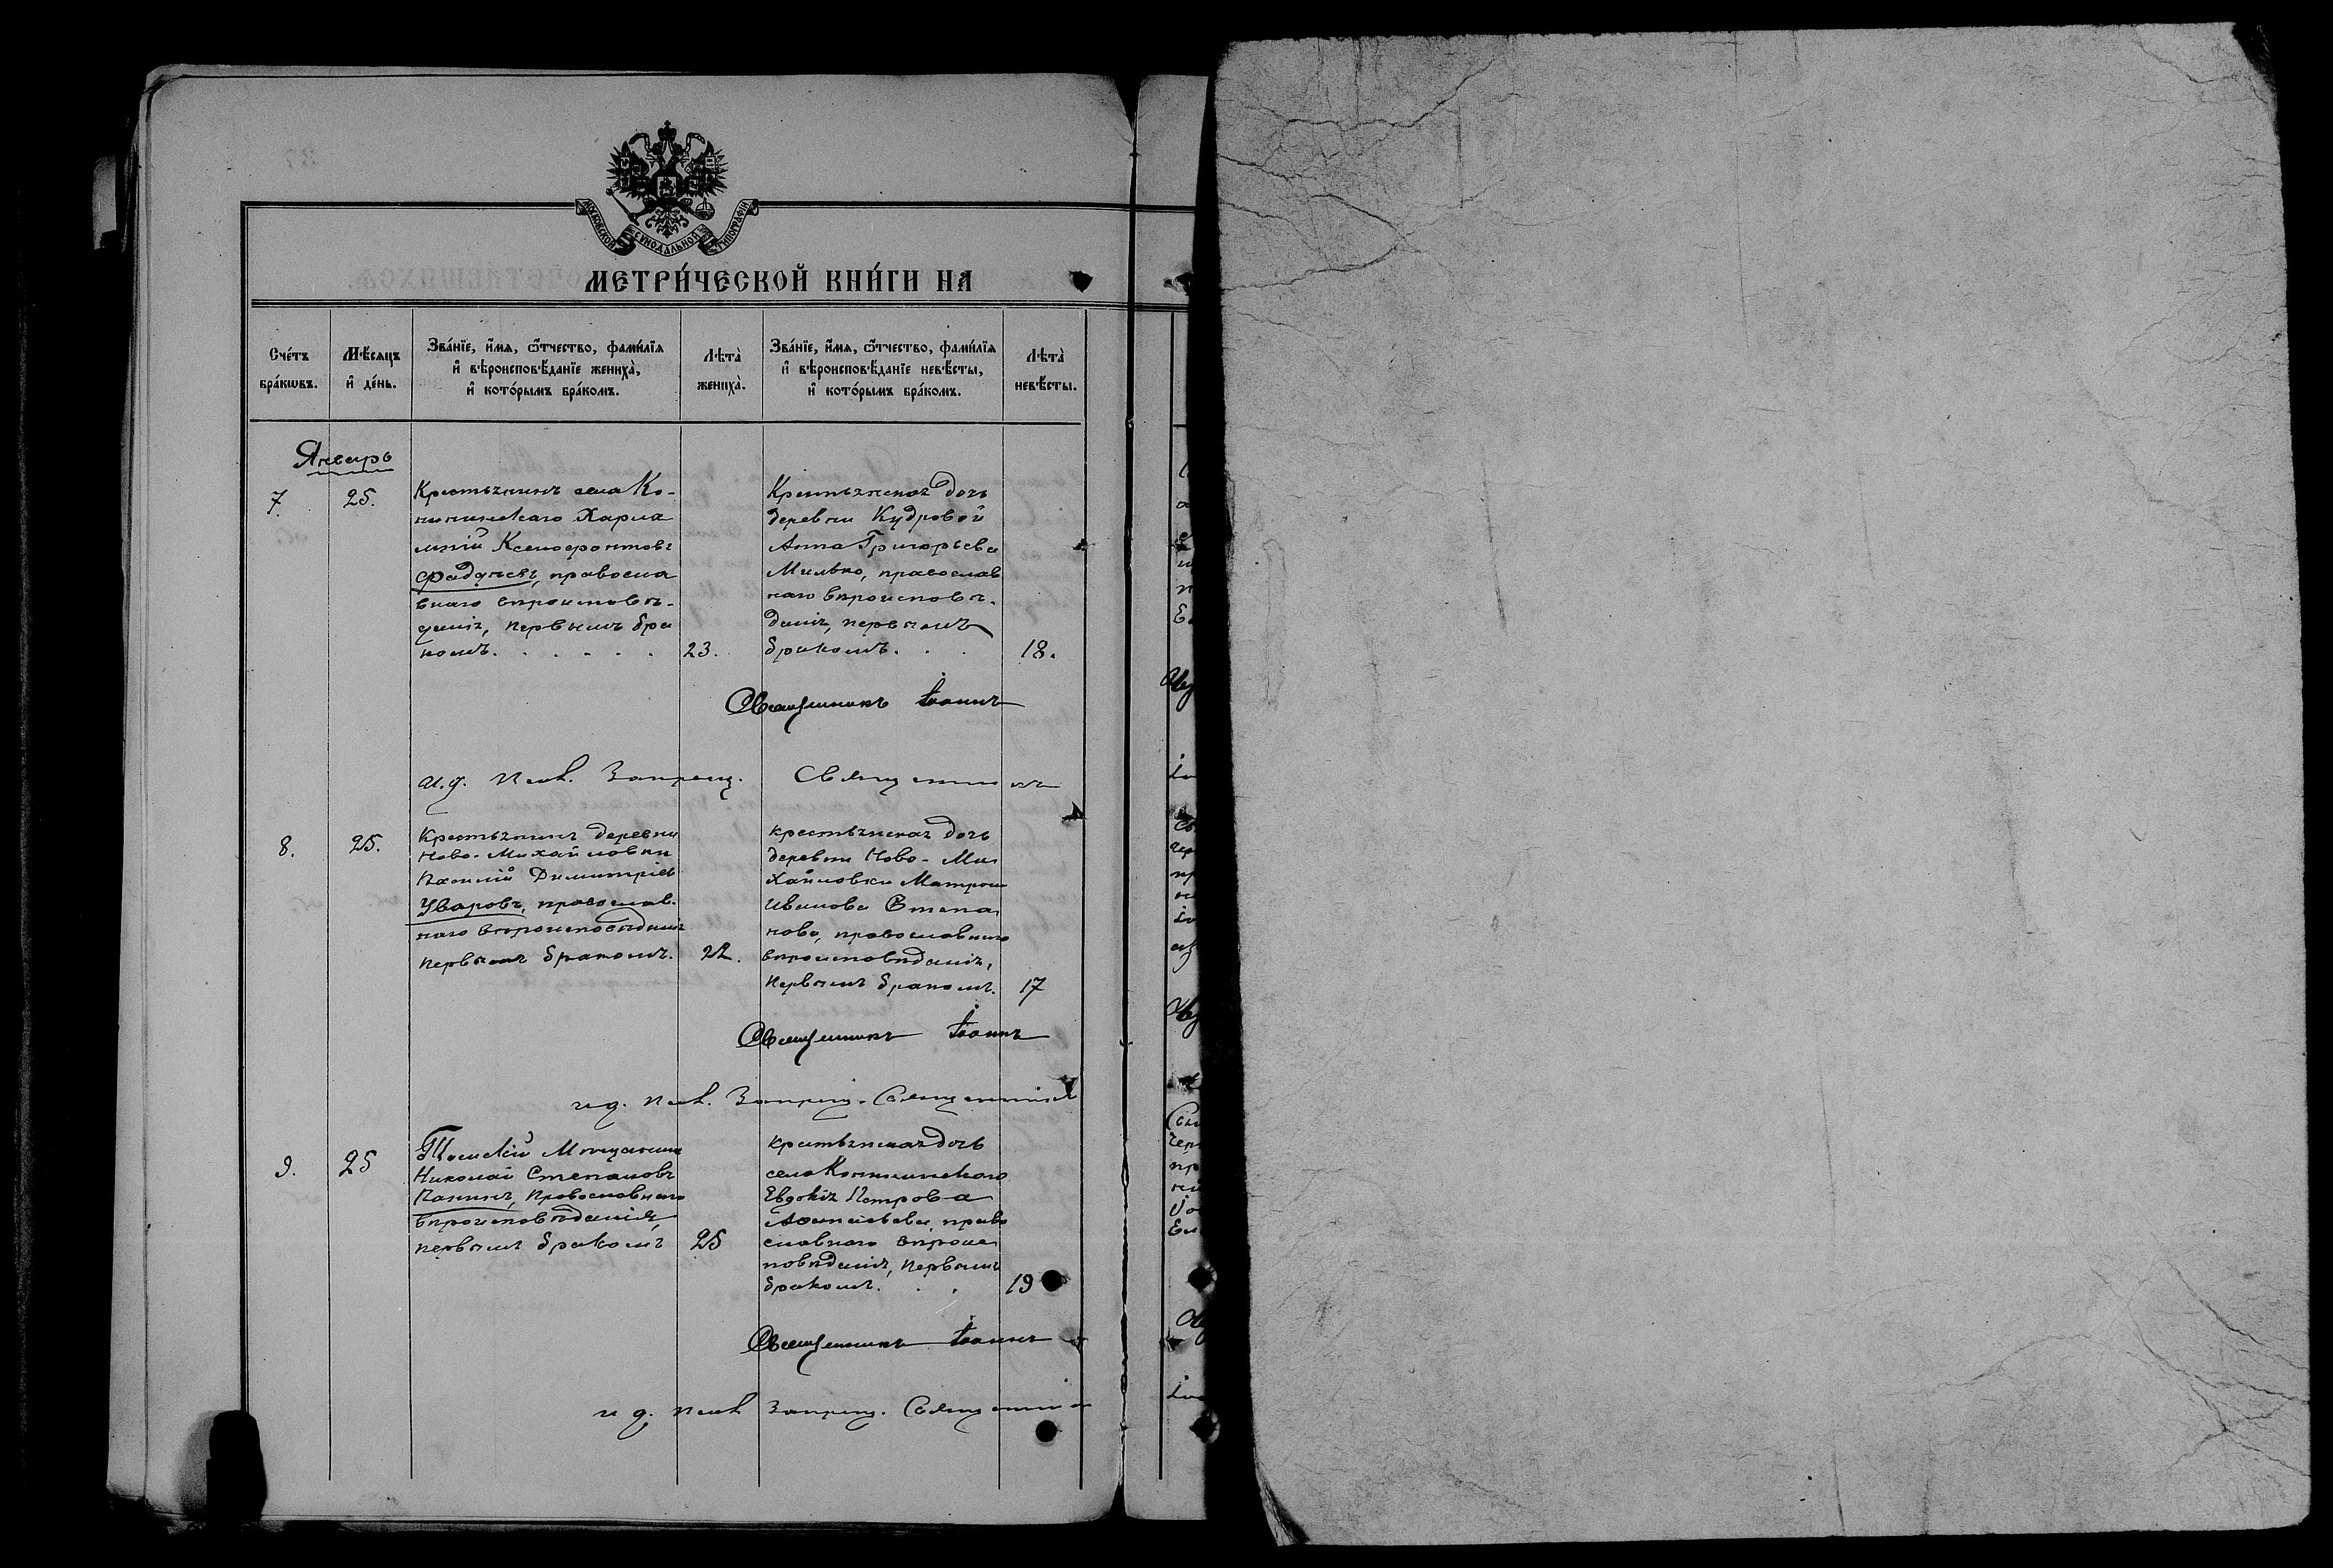 МОСКОВСКОЙ СѴНОДАЛЬНОЙ ТИПОГРАФІИ
МЕТРИ́ЧЕСКОЙ КНИ́ГИ НА
Сче́тъ бра́кωвъ.
Мѣ́сяцъ и҆ де́нь.
Зва́нїе, и҆́мѧ, ѻ҆́тчество, фами́лїѧ
и҆ вѣроисповѣ́данїе жениха̀,
и҆ кото́рымъ бра́комъ.
Лѣта̀ жениха̀.
Зва́нїе, и҆́мѧ, ѻ҆́тчество, фами́лїѧ
и҆ вѣроисповѣ́данїе невѣ́сты,
и҆ кото́рымъ бра́комъ.
Лѣта̀ невѣ́сты.
Январь
7.
25.
Крестьянинъ села Ко-
нининскаго Харла
мпій Ксенофонтовъ
православ
внаго вѣроисповѣ-
данія, первымъ бра
комъ.
23.
Крестьянская дочь
деревни Кудровой
Анна Григорьева
Милько, православ
наго вѣроисповѣ-
данія, первымъ
бракомъ.
18.
Священникъ Іоаннъ
и.д. Псал. Запрещ. Священникъ
8.
25.
Крестьянинъ деревни
Ново-Михайловки
Василій Димитріев
Уваровъ, православ-
наго вѣроисповѣданія
первымъ бракомъ.
22.
крестьянская дочь
деревни Ново-Ми
хайловки Матрона
Иванова Степа
нова, православнаго
вѣроисповѣданія,
первымъ бракомъ.
17
Священникъ Іоаннъ
и д. Псал. Запрещ. Священникъ
9.
25
Томскій Мѣщанинъ
Николай Степановъ
Панинъ, православнаго
вѣроисповѣданія,
первымъ бракомъ
25
крестьянская дочь
села
Евдокія Петрова
Афанасьева, право
славнаго вѣроис
повѣданія, первымъ
бракомъ.
19
Священникъ Іоаннъ
и д. Псал Запрещ. Священник